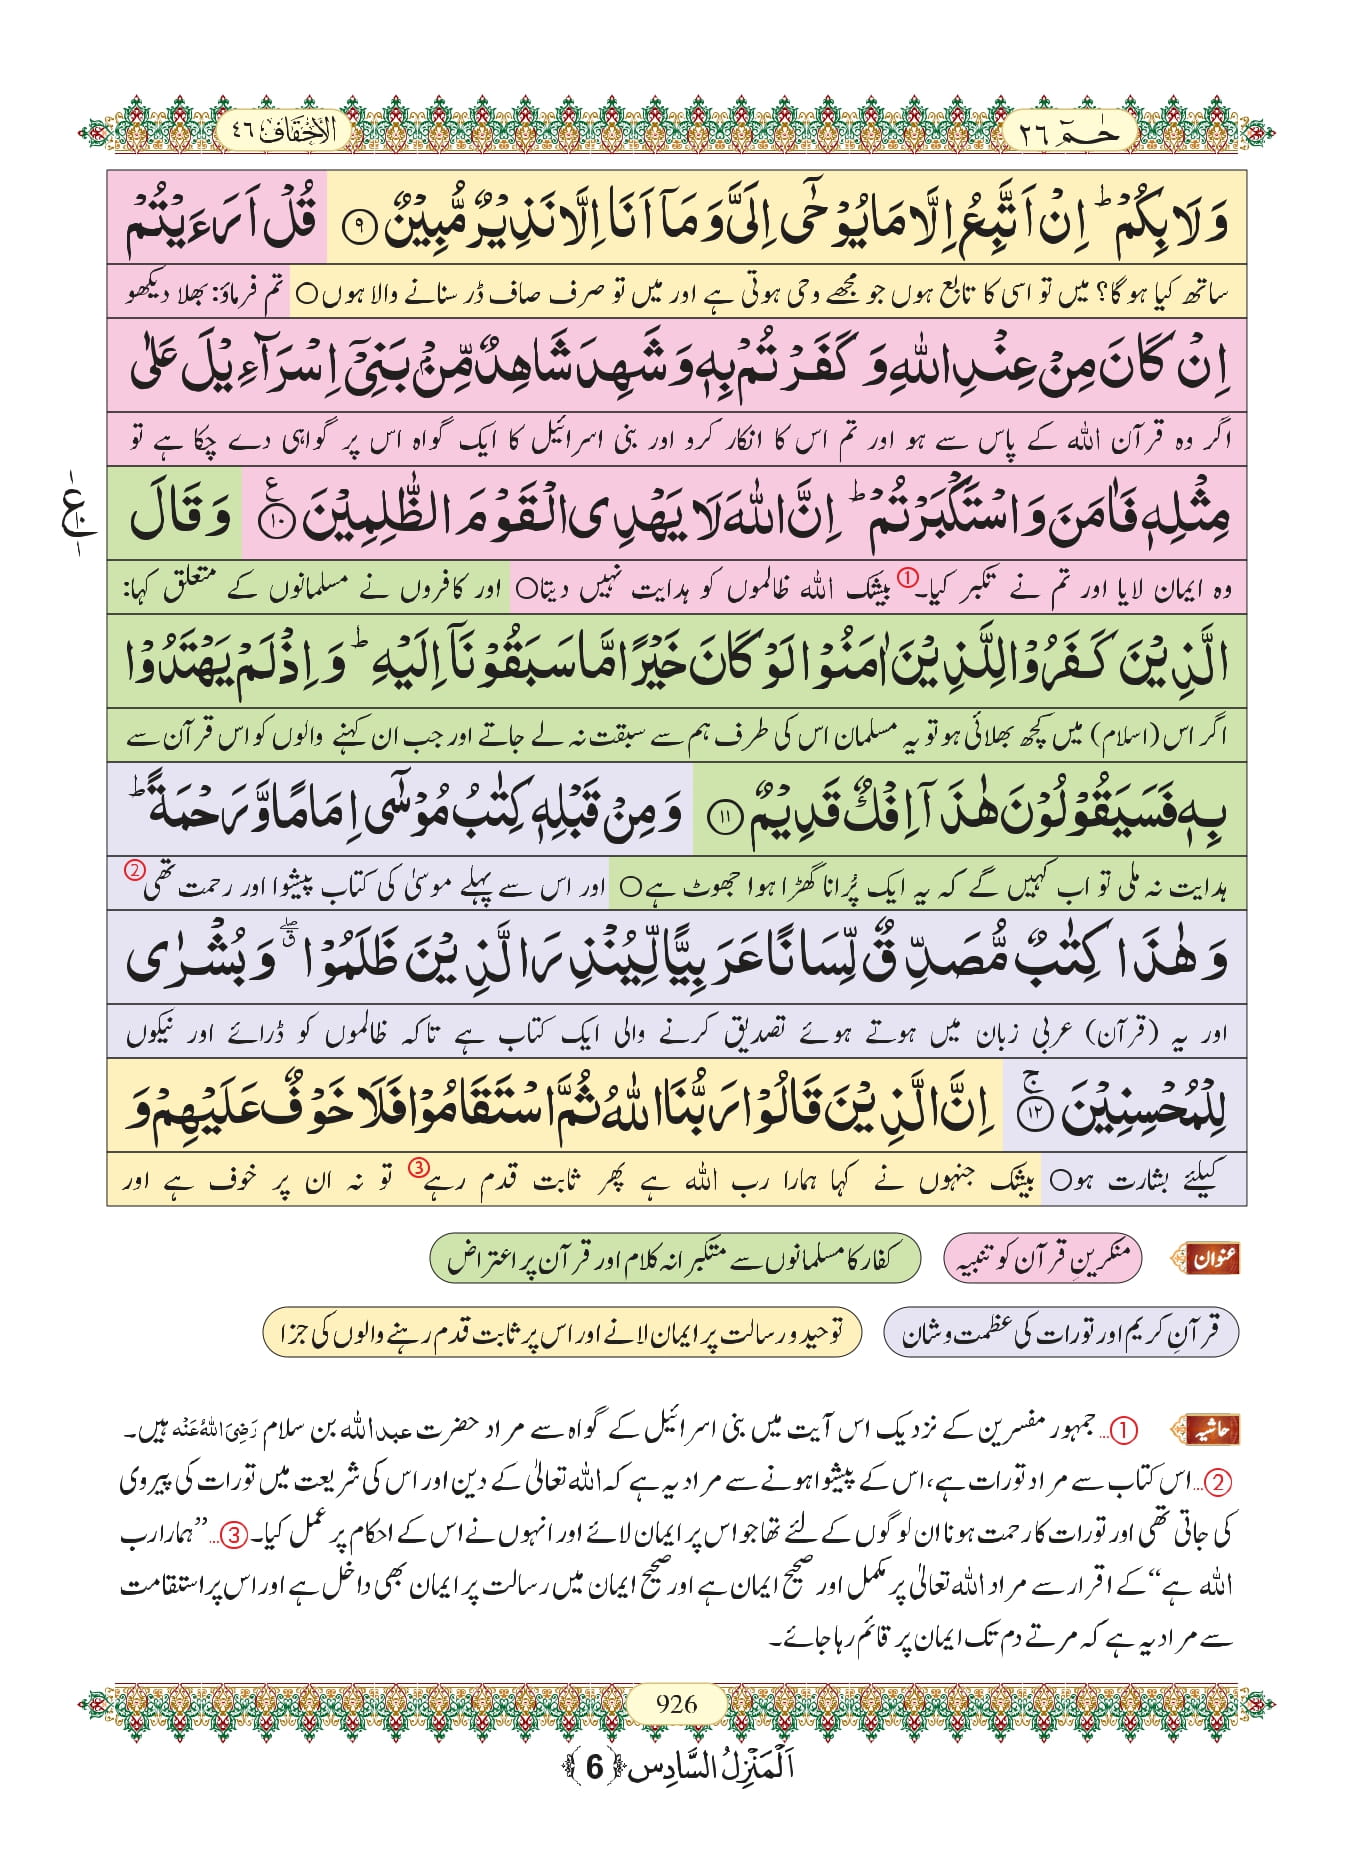 حٰمٓ ٢٦
الاحقاف ٤٦
وَ لَا بِكُمْ ؕ اِنْ اَتَّبِعُ اِلَّا مَا یُوْحٰۤى اِلَیَّ وَ مَاۤ اَنَا اِلَّا نَذِیْرٌ مُّبِیْنٌ ۹ قُلْ اَرَءَیْتُمْ
ساتھ کیا ہوگا؟ میں تو اسی کا تابع ہوں جو مجھے وحی ہوتی ہے اور میں تو صرف صاف ڈر سنانے والا ہوں○ تم فرماؤ: بھلا دیکھو
اِنْ كَانَ مِنْ عِنْدِ اللّٰهِ وَ كَفَرْتُمْ بِهٖ وَ شَهِدَ شَاهِدٌ مِّنْۢ بَنِیْۤ اِسْرَآءِیْلَ عَلٰى
اگر وہ قرآن اللہ کے پاس سے ہو اور تم اس کا انکار کرو اور بنی اسرائیل کا ایک گواہ اس پر گواہی دے چکا ہے تو
مِثْلِهٖ فَاٰمَنَ وَ اسْتَكْبَرْتُمْ ؕ اِنَّ اللّٰهَ لَا یَهْدِی الْقَوْمَ الظّٰلِمِیْنَ ۱۰ ع وَ قَالَ
وہ ایمان لایا اور تم نے تکبر کیا۔① بیشک اللہ ظالموں کو ہدایت نہیں دیتا○ اور کافروں نے مسلمانوں کے متعلق کہا:
الَّذِیْنَ كَفَرُوْا لِلَّذِیْنَ اٰمَنُوْا لَوْ كَانَ خَیْرًا مَّا سَبَقُوْنَاۤ اِلَیْهِ ؕ وَ اِذْ لَمْ یَهْتَدُوْا
اگر اس (اسلام) میں کچھ بھلائی ہو تو یہ مسلمان اس کی طرف ہم سے سبقت نہ لے جاتے اور جب ان کہنے والوں کو اس قرآن سے
بِهٖ فَسَیَقُوْلُوْنَ هٰذَاۤ اِفْكٌ قَدِیْمٌ ۱۱ وَ مِنْ قَبْلِهٖ كِتٰبُ مُوْسٰۤى اِمَامًا وَّ رَحْمَةً ؕ
ہدایت نہ ملی تو اب کہیں گے کہ یہ ایک پُرانا گھڑا ہوا جھوٹ ہے○ اور اس سے پہلے موسیٰ کی کتاب پیشوا اور رحمت تھی②
وَ هٰذَا كِتٰبٌ مُّصَدِّقٌ لِّسَانًا عَرَبِیًّا لِّیُنْذِرَ الَّذِیْنَ ظَلَمُوْا ۖۗ وَ بُشْرٰى
اور یہ (قرآن) عربی زبان میں ہوتے ہوئے تصدیق کرنے والی ایک کتاب ہے تاکہ ظالموں کو ڈرائے اور نیکوں
لِلْمُحْسِنِیْنَ ۱۲ ج اِنَّ الَّذِیْنَ قَالُوْا رَبُّنَا اللّٰهُ ثُمَّ اسْتَقَامُوْا فَلَا خَوْفٌ عَلَیْهِمْ وَ
کیلئے بشارت ہو○ بیشک جنہوں نے کہا ہمارا رب اللہ ہے پھر ثابت قدم رہے③ تو نہ ان پر خوف ہے اور
عنوان منکرینِ قرآن کو تنبیہ کفار کا مسلمانوں سے متکبرانہ کلام اور قرآن پر اعتراض
قرآنِ کریم اور تورات کی عظمت و شان توحید و رسالت پر ایمان لانے اور اس پر ثابت قدم رہنے والوں کی جزا
حاشیہ ①...جمہور مفسرین کے نزدیک اس آیت میں بنی اسرائیل کے گواہ سے مراد حضرت عبداللہ بن سلام رَضِیَ اللہُ عَنْہ ہیں۔
②...اس کتاب سے مراد تورات ہے، اس کے پیشوا ہونے سے مراد یہ ہے کہ اللہ تعالیٰ کے دین اور اس کی شریعت میں تورات کی پیروی
کی جاتی تھی اور تورات کا رحمت ہونا ان لوگوں کے لئے تھا جو اس پر ایمان لائے اور انہوں نے اس کے احکام پر عمل کیا۔③...”ہمارا رب
اللہ ہے“ کے اقرار سے مراد اللہ تعالیٰ پر مکمل اور صحیح ایمان ہے اور صحیح ایمان میں رسالت پر ایمان بھی داخل ہے اور اس پر استقامت
سے مراد یہ ہے کہ مرتے دم تک ایمان پر قائم رہا جائے۔
926
اَلْمَنْزِلُ السَّادِس ﴿6﴾